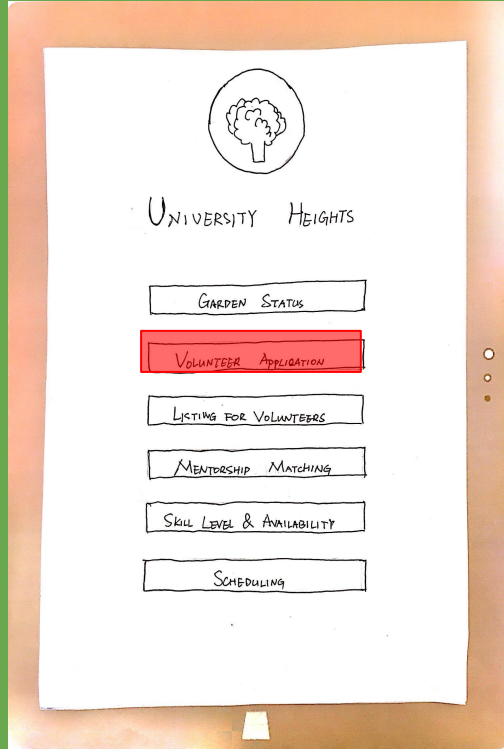 UNIVERSITY HEIGHTS
GARDEN STATUS
VOLUNTEER APPLICATION
LISTING FOR VOLUNTEERS
MENTORSHIP MATCHING
SKILL LEVEL & AVAILABILITY
SCHEDULING